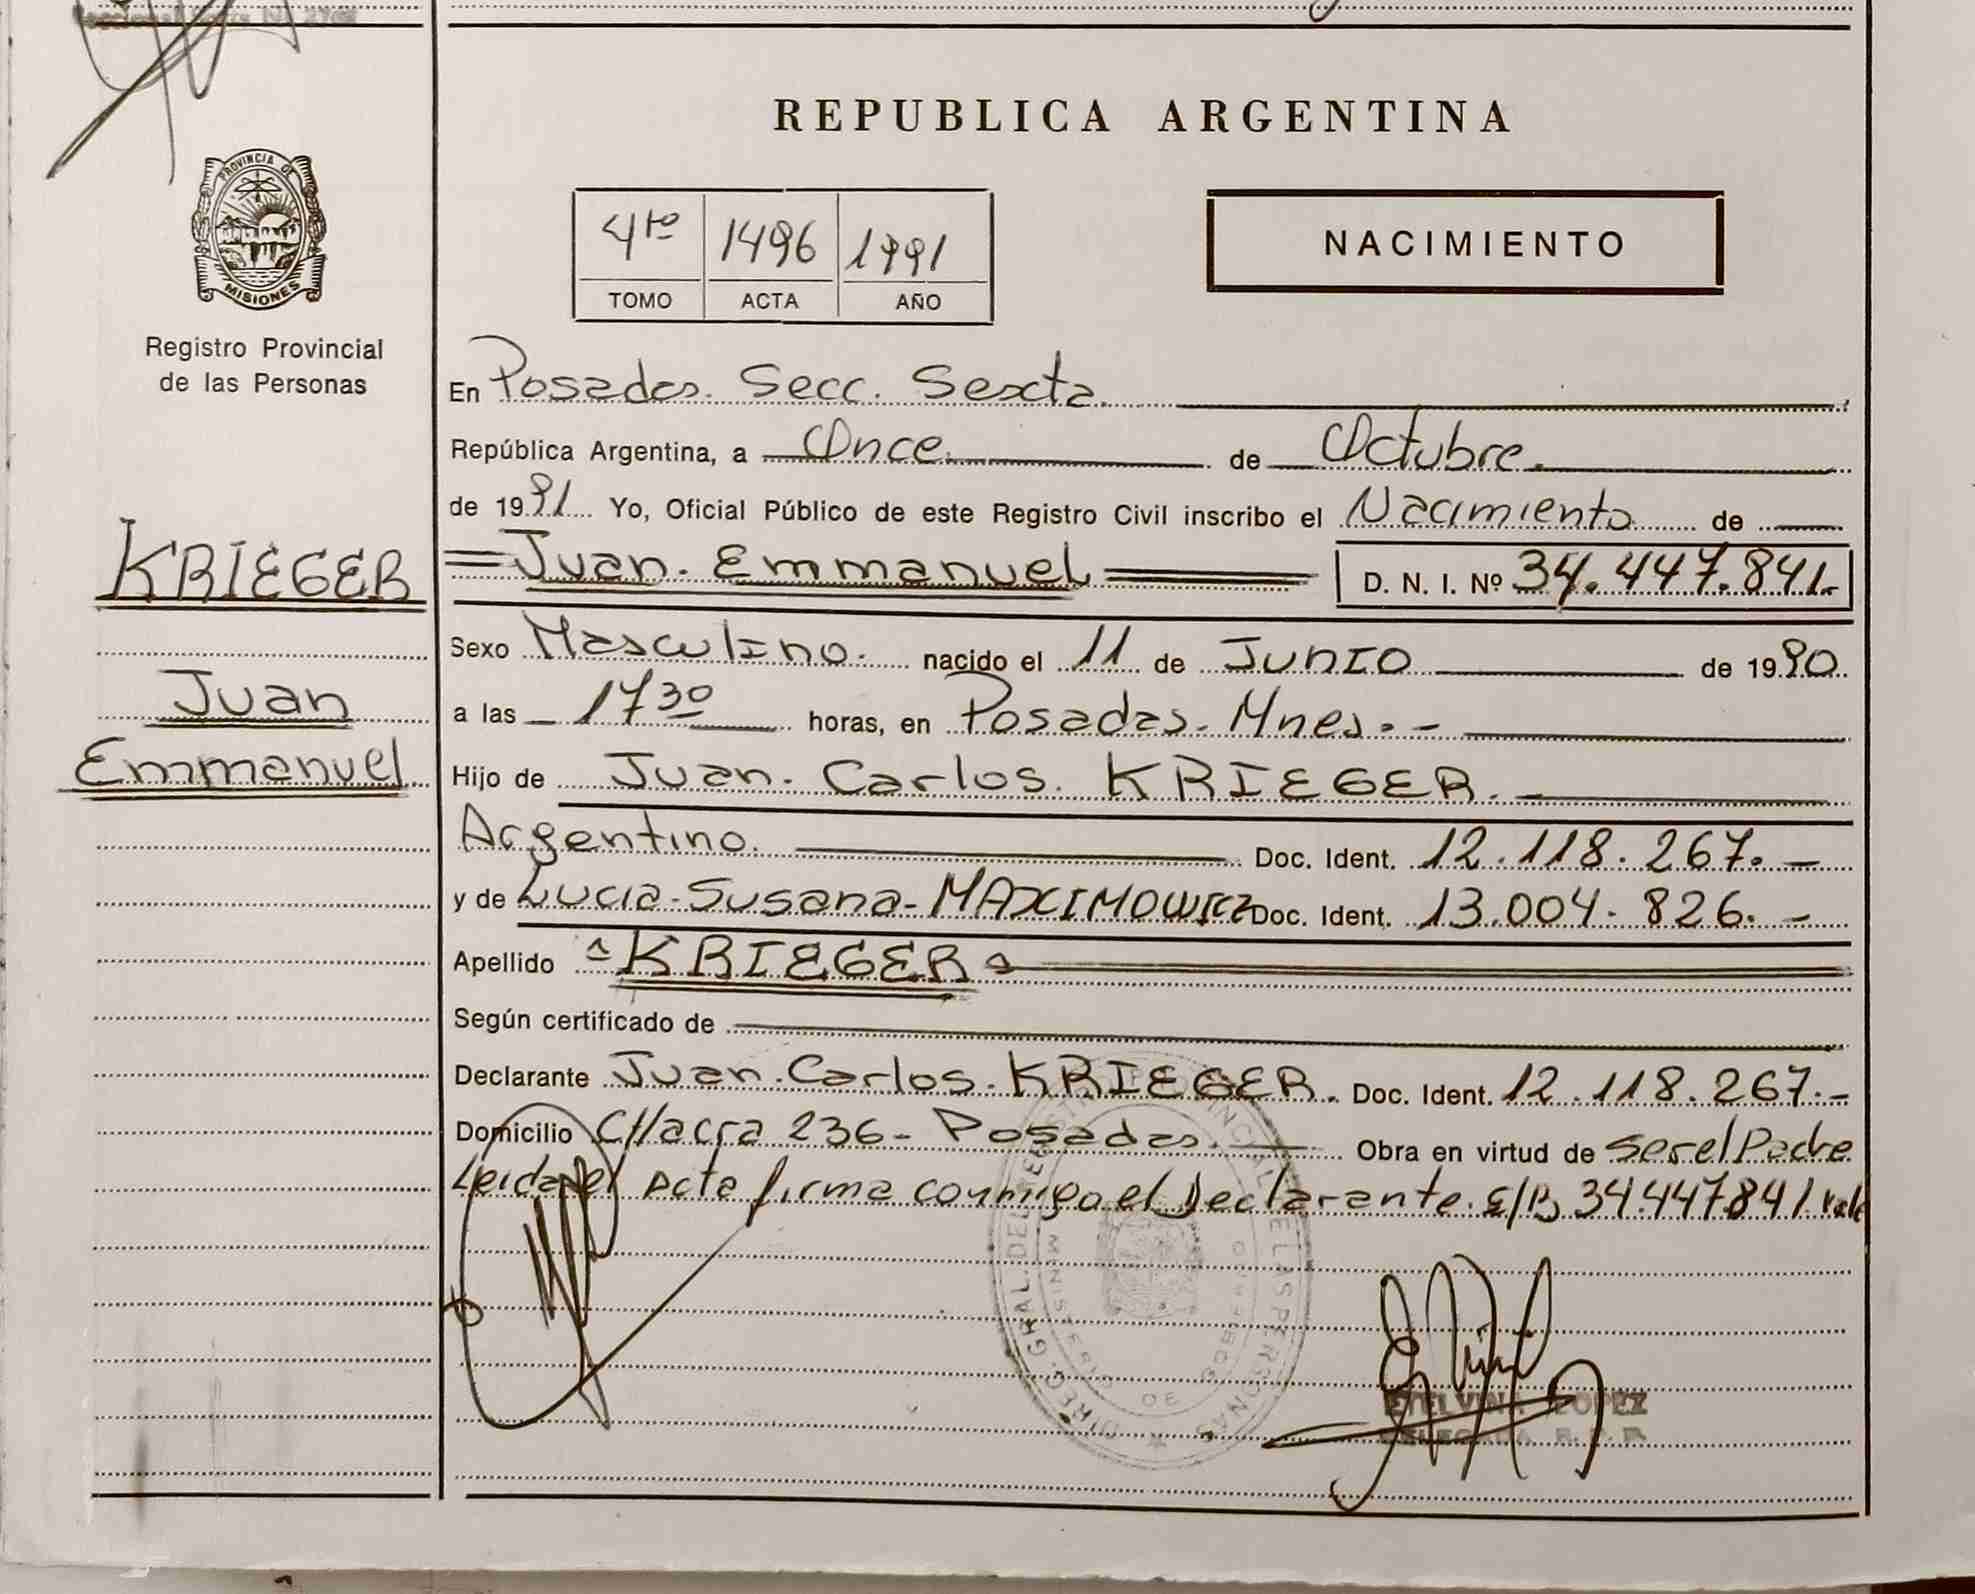 REPUBLICA ARGENTINA
PROVINCIA DE
MISIONES
Registro Provincial
de las Personas
4to 1496 1991
TOMO ACTA AÑO
NACIMIENTO
En Posadas. Secc. Sexta
República Argentina, a Once de Octubre.
de 1991 Yo, Oficial Público de este Registro Civil inscribo el Nacimiento de
KRIEGER
Juan
Emmanuel
Juan. Emmanuel D. N. I. Nº 34.447.841.
Sexo Masculino. nacido el 11 de JUNIO de 1990.
a las 17 30 horas, en Posadas. Mnes. -
Hijo de Juan. Carlos. KRIEGER.
Argentino. Doc. Ident. 12.118.267. -
y de Lucia-Susana-MAXIMOWICZ Doc. Ident. 13.004.826. -
Apellido KRIEGER
Según certificado de
Declarante Juan. Carlos. KRIEGER. Doc. Ident. 12.118.267.-
Domicilio CHacra 236- Posadas. Obra en virtud de ser el Padre
Leida el Acta firma conmigo el Declarante. E/B 34.447.841 Vale
DIREC. GRAL. DEL REGISTRO PROVINCIAL DE LAS PERSONAS
MINISTERIO DE GOBIERNO
ETELVINA LOPEZ
DELEGADA R. P. P.